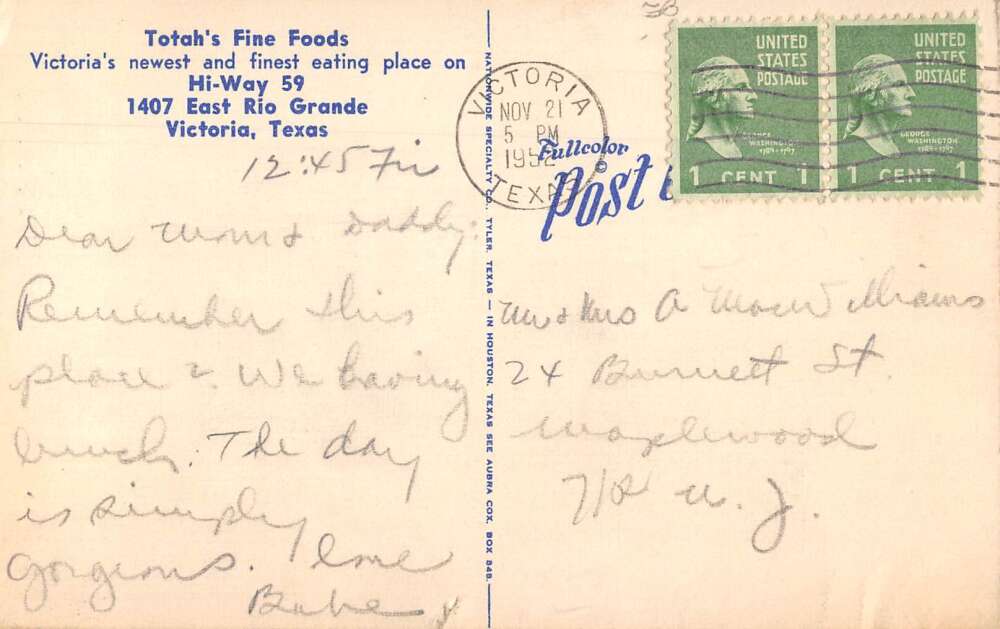 Totah's Fine Foods
Victoria's newest and finest eating place on
Hi-Way 59
1407 East Rio Grande
Victoria, Texas
12:45 Fri
Dear Mom & Daddy:
Remember this
place? We having
lunch. The day
is simply
gorgeous. Love
Babe
NATIONWIDE SPECIALTY CO., TYLER, TEXAS — IN HOUSTON, TEXAS SEE AUBRA COX, BOX 848.
VICTORIA
NOV 21
5 PM
1952
TEXAS
Fullcolor
©
Post
UNITED
STATES
POSTAGE
GEORGE
WASHINGTON
1789-1797
1 CENT 1
UNITED
STATES
POSTAGE
GEORGE
WASHINGTON
1789-1797
1 CENT 1
Mr & Mrs A Williams
24 Burnett St.
Maplewood
N. J.